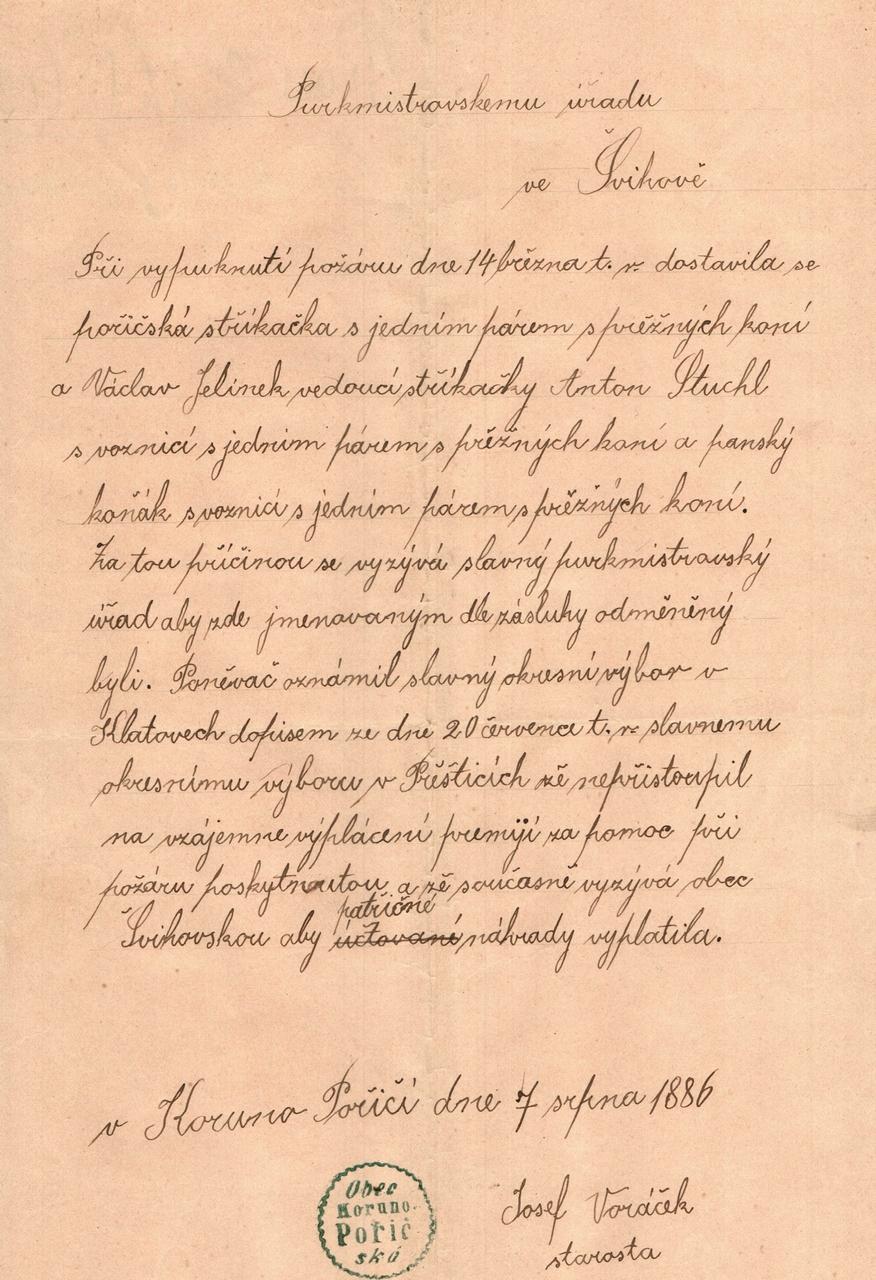 Purkmistrovskemu úřadu
ve Švihově
Při vypuknutí požáru dne 14 března t. r. dostavila se
poříčská stříkačka s jedním párem s přěžných koní
a Václav Jelínek vedoucí stříkačky Anton Stuchl
s voznicí s jednim párem s přěžných koní a panský
koňák s voznicí s jedním párem s přěžných koní.
Za tou příčinou se vyzývá slavný purkmistrovský
úřad aby zde jmenovaným dle zásluhy odměněný
byli. Poněvač oznámil slavný okresní výbor v
Klatovech dopisem ze dne 20 července t. r. slavnemu
okresnímu výboru v Přěšticích zě nepřistoupil
na vzájemne výplácení premijí za pomoc při
požáru poskytnoutou a zě současně vyzývá obec
patřičné
Švihovskou aby účtovaní náhrady vyplatila.
v Koruno Poříčí dne 7 srpna 1886
Obec
Koruno-
Poříč
ská
Josef Voráček
starosta